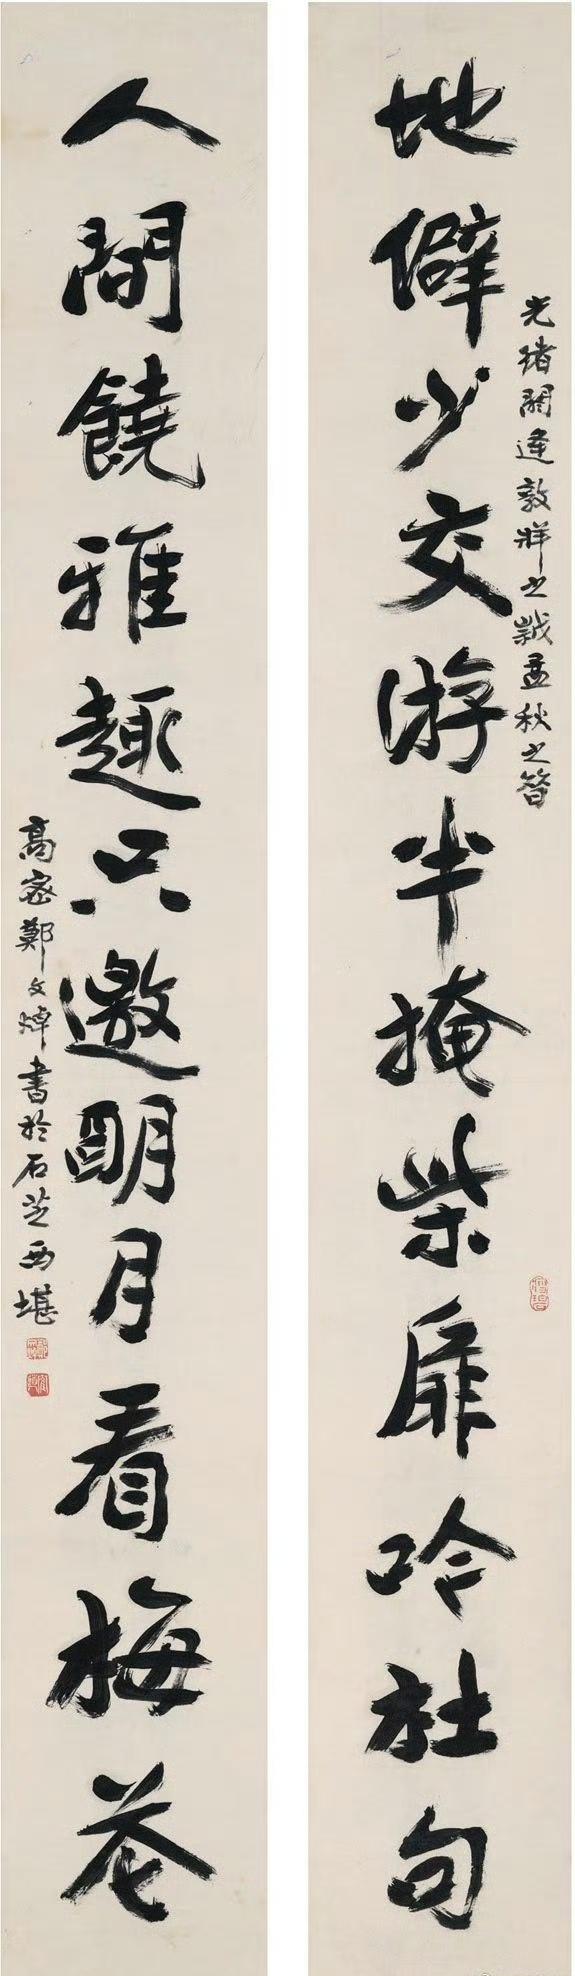 光緒閼逢敦牂之歲孟秋之
地僻少交游半掩柴扉吟杜句
人間饒雅趣只邀明月看梅花
高密鄭文焯書於石芝西堪